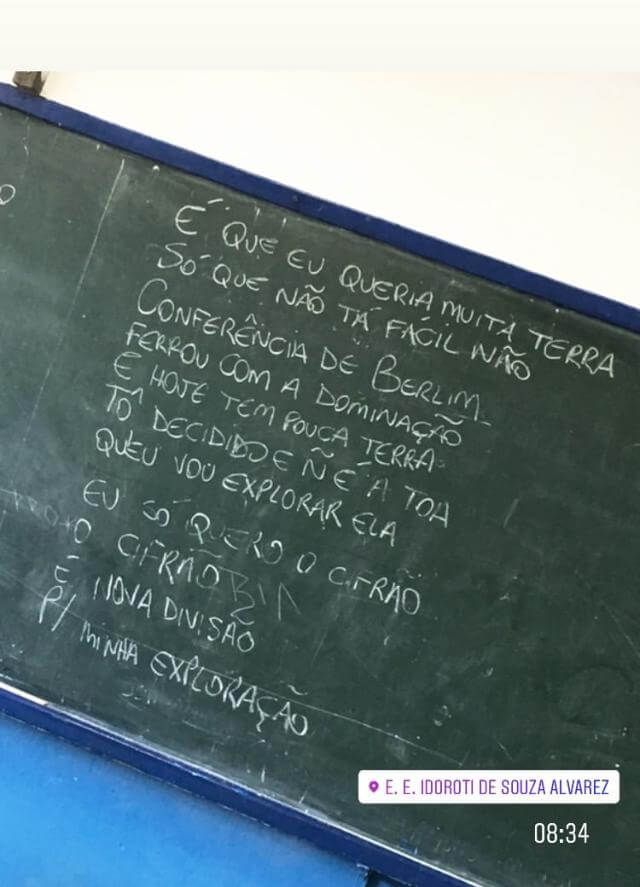 É QUE EU QUERIA MUITA TERRA
SÓ QUE NÃO TÁ FACIL NÃO
CONFERÊNCIA DE BERLIM
FERROU COM A DOMINAÇÃO
E HOJE TEM POUCA TERRA
TÔ DECIDIDO E Ñ É A TOA
QUEU VOU EXPLORAR ELA
EU SÓ QUERO O CIFRÃO
O CIFRÃO
É NOVA DIVISÃO
P/ MINHA EXPLORAÇÃO
E. E. IDOROTI DE SOUZA ALVAREZ
08:34